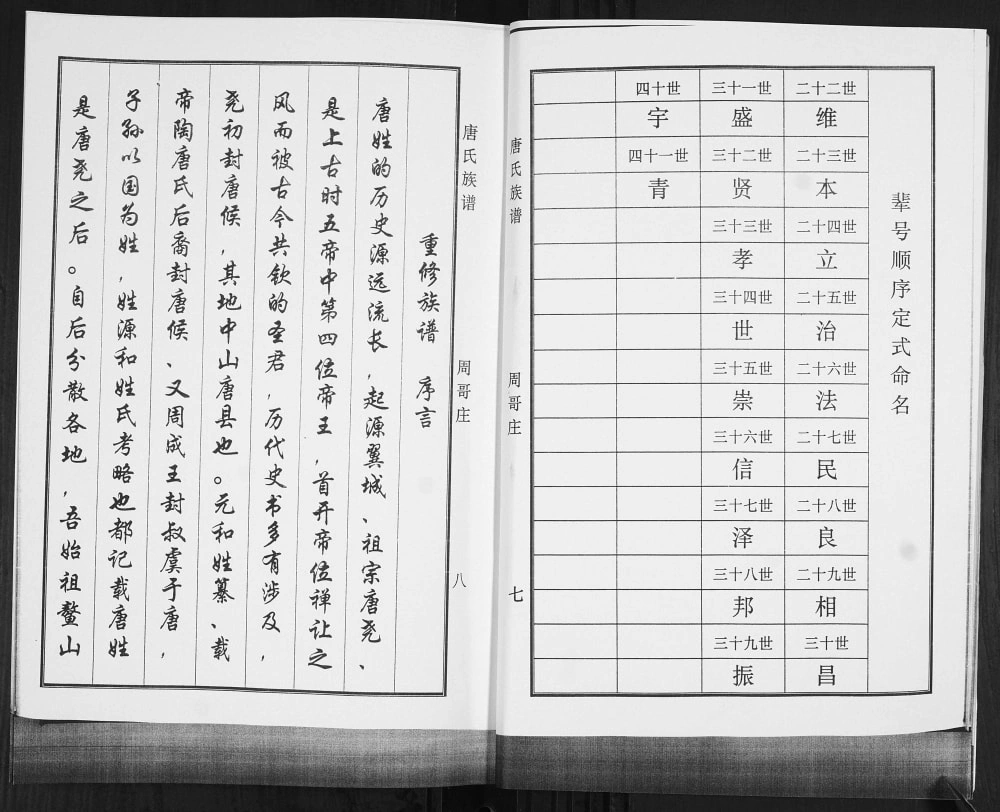 辈号顺序定式命名
二十二世
维
二十三世
本
二十四世
立
二十五世
治
二十六世
法
二十七世
民
二十八世
良
二十九世
相
三十世
昌
三十一世
盛
三十二世
贤
三十三世
孝
三十四世
世
三十五世
崇
三十六世
信
三十七世
泽
三十八世
邦
三十九世
振
四十世
宇
四十一世
青
唐氏族谱 周哥庄 七
唐氏族谱 周哥庄 八
重修族谱 序言
唐姓的历史源远流长，起源翼城、祖宗唐尧、
是上古时五帝中第四位帝王，首开帝位禅让之
风而被古今共钦的圣君，历代史书多有涉及，
尧初封唐候，其地中山唐县也。元和姓纂、载
帝陶唐氏后裔封唐候、又周成王封叔虞于唐，
子孙以国为姓，姓源和姓氏考略也都记载唐姓
是唐尧之后。自后分散各地，吾始祖鳌山